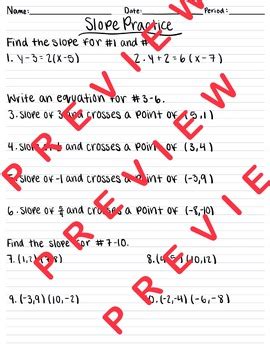 Name: Date: Period:
Slope Practice
Find the slope for #1 and #
1. y-3=2(x-5) 2. y+2=6(x-7)
Write an equation for #3-6.
3. Slope of 3 and crosses a point of (5,1)
4. slope of and crosses a point of (3,4)
5. slope of -1 and crosses a point of (-3,9)
6. slope of and crosses a point of (-8,-10)
Find the slope for #7-10.
7. (1,2) (7,8) 8. (10,12)
9. (-3,9) (10,-2) 10. (-2,-4) (-6,-8)
PREVIEW
PREVIEW